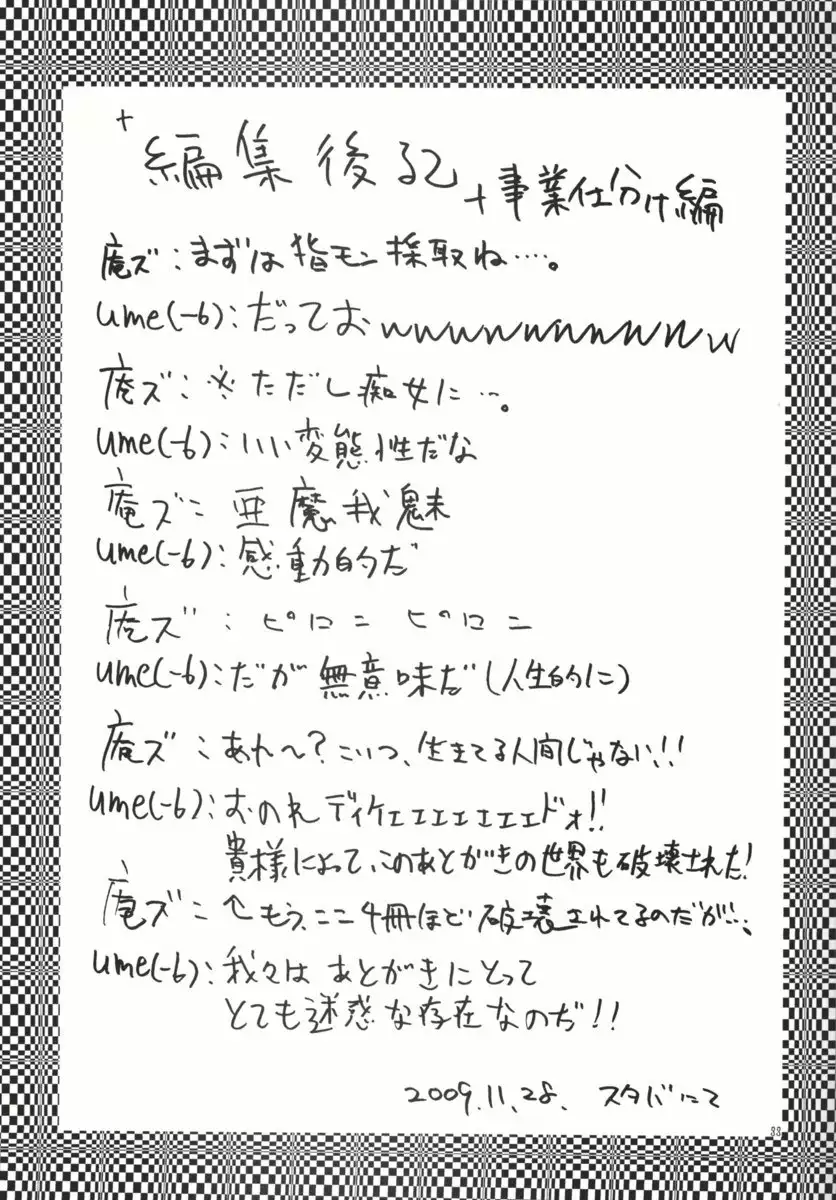 +編集後記+事業仕分け編
庵ズ:まずは指モン採取ね…。
ume(-6):だっておwwwwwwwwwww
庵ズ:※ただし痴女に…。
ume(-6):いい変態性だな
庵ズ:亜魔我魅
ume(-6):感動的だ
庵ズ:ピロニ ピロニ
ume(-6):だが無意味だ(人生的に)
庵ズ:あれ〜?こいつ、生きてる人間じゃない!!
ume(-6):おのれディケェェェェェェドォ!!
貴様によって、このあとがきの世界も破壊された!
庵ズ:↑もう、ここ4冊ほど破壊されてるのだが…。
ume(-6):我々はあとがきにとって
とても迷惑な存在なのだ!!
2009.11.28. スタバにて
33